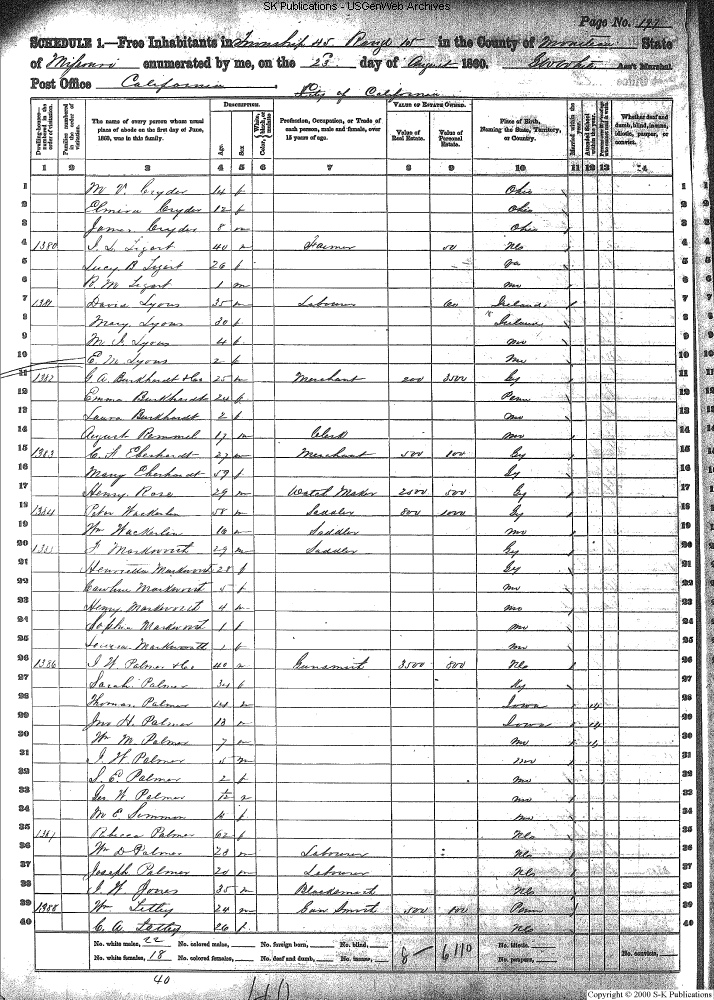 SK Publications - USGenWeb Archives
Page No. 197
SCHEDULE 1.—Free Inhabitants in Township 45 Range 15 in the County of Moniteau State
of Missouri enumerated by me, on the 23 day of August 1860. Ass't Marshal
Post Office California City of California
Dwelling-houses—numbered in the order of visitation.
Families numbered in the order of visitation.
The name of every person whose usual place of abode on the first day of June, 1860, was in this family.
DESCRIPTION.
Age.
Sex
Color, White, black, or mulatto
Profession, Occupation, or Trade of each person, male and female, over 15 years of age.
VALUE OF ESTATE OWNED.
Value of Real Estate.
Value of Personal Estate.
Place of Birth, Naming the State, Territory, or Country.
Married within the year.
Attended School within the year.
Whether deaf and dumb, blind, insane, idiotic, pauper, or convict.
1 2 3 4 5 6 7 8 9 10 11 12 13 14
1 M V. Cryder 14 f Ohio 1
2 Elmira Cryder 12 f Ohio 2
3 James Cryder 8 m Ohio 3
4 1380 40 m Farmer 50 4
5 Lucy B 26 f Va 5
6 R. M. 1 m Mo 6
7 1381 David Lyons 35 m Labourer Ireland 7
8 Mary Lyons 30 f Ireland 8
9 Lyons 4 f Mo 9
10 E. M Lyons 2 f Mo 10
11 1382 G. A. Burkhardt & Co 25 m Merchant 200 3500 Gy 11
12 Emma Burkhardt 24 f Penn 12
13 Laura Burkhardt 2 f Mo 13
14 August Remmel 17 m Clerk Mo 14
15 1383 C. F Eberhardt 27 m Merchant 500 100 Gy 15
16 Mary Eberhardt 59 f Gy 16
17 Henry Rose 29 m Watch Maker 2000 500 Gy 17
18 1384 Peter Wackerlin 50 m Saddler 800 1000 Gy 18
19 Wm Wackerlin m Saddler Mo 19
20 F Markworst 29 m Saddler Gy 20
21 Henrietta Markworst 28 f Gy 21
22 Caroline Markworst 5 f Mo 22
23 Henry Markworst 4 m Mo 23
24 Sophia Markworst 1 f Mo 24
25 Louisa Markworst 1 f Mo 25
26 1386 J. W. Palmer & Co 40 Gunsmith 3500 800 26
27 Sarah Palmer 34 f Ky 27
28 Thomas Palmer 14 Iowa 28
29 Jno H. Palmer 13 Iowa 29
30 Wm M. Palmer 7 Mo 30
31 J. W. Palmer 5 m Mo 31
32 S. E. Palmer 2 f Mo 32
33 W. Palmer Mo 33
34 M E. Mo 34
35 1387 Rebecca Palmer 62 f 35
36 Wm D Palmer 23 m Labourer 36
37 Joseph Palmer 20 m Labourer 37
38 J. W Jones 35 m Blacksmith 38
39 1388 Wm Litley 24 m Gun Smith 500 100 Penn 39
40 C. A. Litley 26 f 40
No. white males, 22 No. colored males, No. foreign born, No. blind, 8— 6110 No. idiotic,
No. white females, 18 No. colored females, No. deaf and dumb, No. insane, No. paupers, No. convicts,
40
Copyright © 2000 S-K Publications